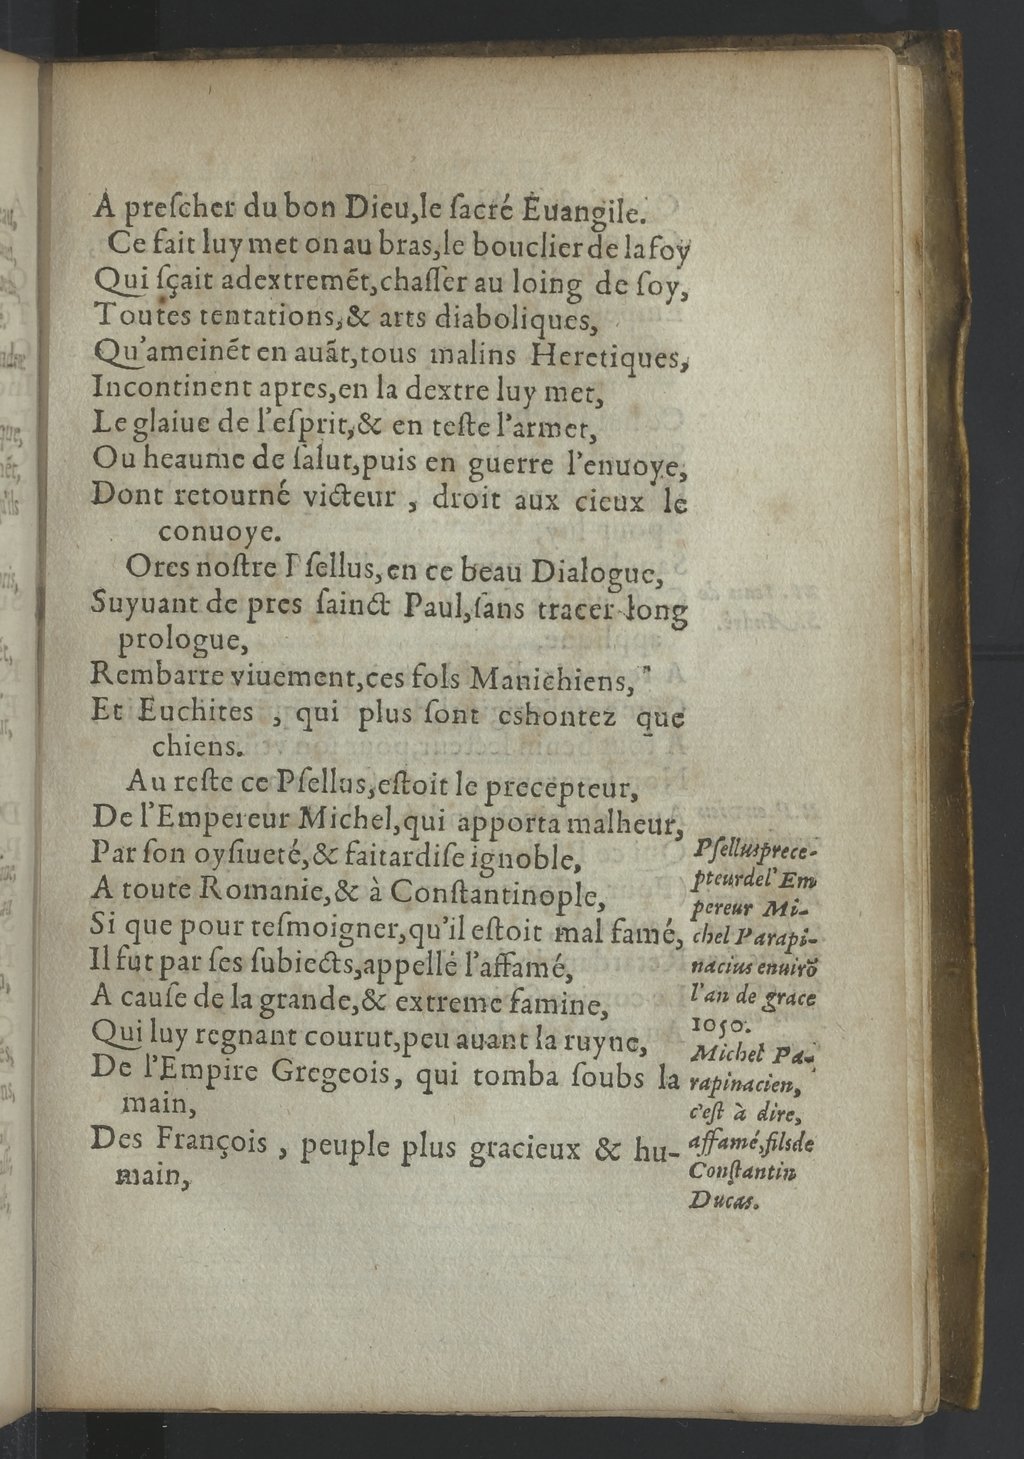 A preſcher du bon Dieu,le ſacré Euangile.
Ce fait luy met on au bras,le bouclier de la foy
Qui ſçait adextremẽt,chaſſer au loing de ſoy,
Toutes tentations,& arts diaboliques,
Qu'ameinẽt en auãt,tous malins Heretiques,
Incontinent apres,en la dextre luy met,
Le glaiue de l'eſprit,& en teſte l'armet,
Ou heaume de ſalut,puis en guerre l'enuoye,
Dont retourné victeur , droit aux cieux le
conuoye.
Ores noſtre Pſellus,en ce beau Dialogue,
Suyuant de pres ſainct Paul,ſans tracer long
prologue,
Rembarre viuement,ces fols Manichiens,
Et Euchites , qui plus ſont eshontez que
chiens.
Au reſte ce Pſellus,eſtoit le precepteur,
De l'Empereur Michel,qui apporta malheur,
Par ſon oyſiueté,& faitardiſe ignoble,
A toute Romanie,& à Conſtantinople,
Si que pour teſmoigner,qu'il eſtoit mal famé,
Il fut par ſes ſubiects,appellé l'affamé,
A cauſe de la grande,& extreme famine,
Qui luy regnant courut,peu auant la ruyne,
De l'Empire Gregeois, qui tomba ſoubs la
main,
Des François , peuple plus gracieux & hu-
main,
Pſellus prece-
pteur de l'Em
pereur Mi-
chel Parapi-
nacius enuirõ
l'an de grace
1050.
Michel Pa-
rapinacien,
c'eſt à dire,
affamé,fils de
Conſtantin
Ducas.